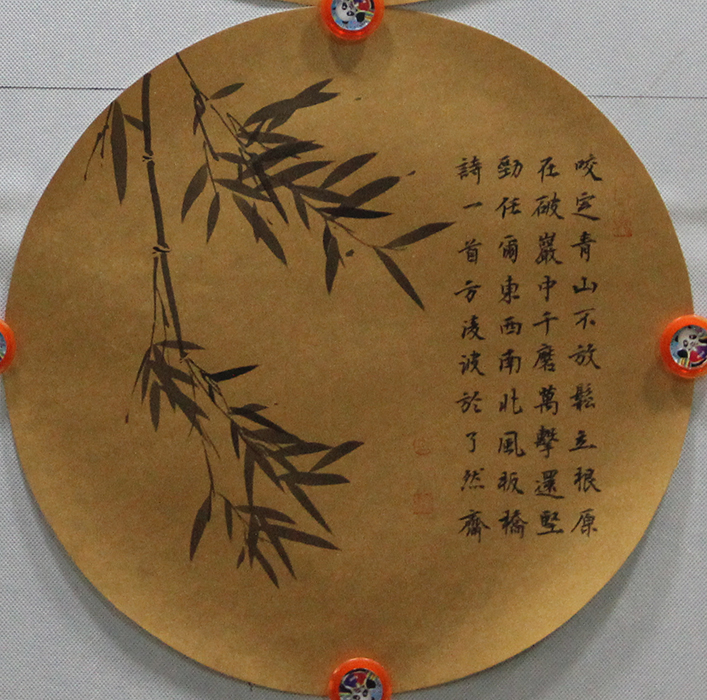 咬定青山不放鬆立根原
在破巖中千磨萬擊還堅
勁任爾東西南北風板橋
詩一首方淩波於了然齋